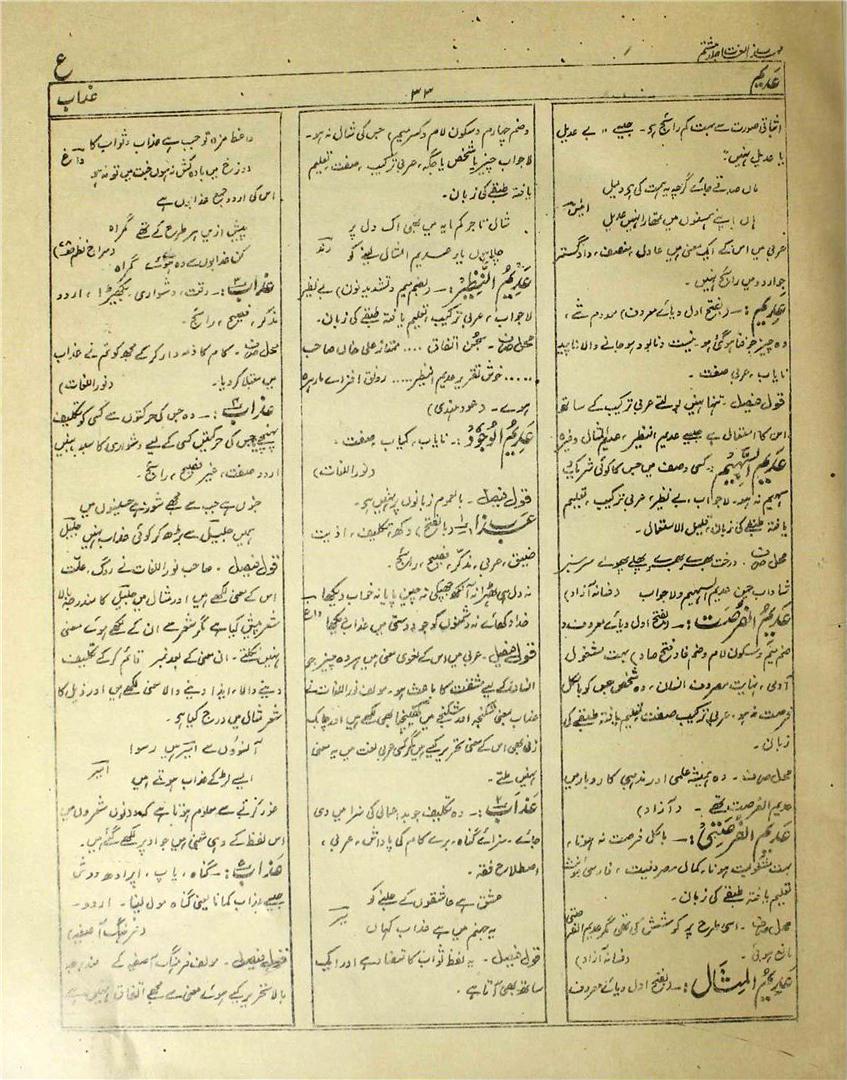 مہذب اللغات جلد ہشتم
ع
عَدِیم
۳۳
عذاب
اثباتی صورت سے بہت کم رائج ہے۔ جیسے " بے عدیل
یا عدیل نہیں"
ہاں اپنے ہمسفروں میں تمھارا نہیں عدیل
عربی میں اس کے ایک معنی میں عادل، منصف، دادگستر
جو اردو میں رائج نہیں۔
عَدِیم :۔ (بفتح اول و یائے معروف) معدوم شے،
وہ چیز جو فنا ہو گئی ہو۔ نیست و نابود ہو جانے والا ناپید
نایاب، عربی صفت۔
قول فیصل۔ تنہا نہیں بولتے عربی ترکیب کے ساتھ
اس کا استعمال ہے جیسے عدیم النظیر، عدیم المثال وغیرہ
عَدِیمُ السَّہِیم :۔ کسی وصف میں جس کا کوئی شریک یا
سہیم نہ ہو۔ لاجواب، بے نظیر، عربی ترکیب، تعلیم
یافتہ طبقے کی زبان، قلیل الاستعمال۔
محل صرف۔ درخت بھرے بھرے پھلے پھولے سرسبز
شاداب چمن عدیم السہیم و لاجواب (فسانہ آزاد)
عَدِیمُ الفُرصَت :۔ (بفتح اول و یائے معروف و
ضم میم و سکون لام و ضم فا و فتح صاد) بہت مشغول
آدمی، نہایت مصروف انسان، وہ شخص جس کو بالکل
فرصت نہ ہو۔ عربی ترکیب صفت تعلیم یافتہ طبقے کی
زبان۔
محل صرف۔ وہ ہمیشہ علمی اور مذہبی کاروبار میں
عدیم الفرصت تھے۔ (آزاد)
عَدِیمُ الفُرصَتِی :۔ بالکل فرصت نہ ہونا،
بہت مشغولیت ہونا، کمال مصروفیت، فارسی مؤنث
تعلیم یافتہ طبقے کی زبان۔
محل صرف۔ اسی طرح پر کوشش کی تھی مگر عدیم الفرصتی
مانع ہوئی۔ (فسانہ آزاد)
عَدِیمُ المِثَال :۔ (بفتح اول و یائے معروف
و ضم چہارم و سکون لام و کسر میم) جس کی مثال نہ ہو۔
لاجواب چیز یا شخص یا جگہ، عربی ترکیب، صفت تعلیم
یافتہ طبقے کی زبان۔
مثال تاجر کم مایہ میں بھی اک دل پر
چلا ہوں یار عدیم المثال لینے کو رند
عَدِیمُ النَّظِیر :۔ (بضم میم و تشدید نون) بے نظیر
لاجواب، عربی ترکیب، تعلیم یافتہ طبقے کی زبان۔
محل صرف۔ حسن اتفاق .... ممتاز علی خاں صاحب
..... خوش تقریر عدیم النظیر .... رونق افزائے مارہرہ
ہوئے۔ (عود ہندی)
عَدِیمُ الوُجُود :۔ نایاب، کمیاب صفت۔
(نور اللغات)
قول فیصل۔ بالعموم زبانوں پر نہیں ہے۔
عذاب (بالفتح) دکھ، تکلیف، اذیت
ضیق، عربی، مذکر، فصیح، رائج۔
نہ دل ہی ٹھہرا نہ آنکھ جھپکی نہ چین پایا نہ خواب دیکھا
خدا دکھائے نہ دشمنوں کو جو دوستی میں عذاب دیکھا داغ
قول فیصل۔ عربی میں اس کے لغوی معنی ہیں ہر وہ چیز جو
انسان کے لیے مشقت کا باعث ہو۔ مولف نور اللغات نے
عذاب بمعنی شکنجہ اور شکنجے میں کھینچنا بھی لکھے ہیں اور چابک
زنی بھی اس کے معنی تحریر کیے ہیں مگر کسی عربی لغت میں یہ معنی
نہیں ملے۔
عَذَاب۲ :۔ وہ تکلیف جو بد اعمالی کی سزا میں دی
جائے۔ سزائے گناہ، برے کام کی پاداش، عربی،
اصطلاح فقہ۔
عشق ہے عاشقوں کے جلنے کو
یہ جہنم میں ہے عذاب کہاں میر
قول فیصل۔ یہ لفظ ثواب کا متضاد ہے اور ایک
ساتھ بھی آتا ہے۔
واعظ مزہ تو جب ہے عذاب و ثواب کا
دوزخ میں بادہ کش نہ ہوں جنت میں تو نہ ہو داغ
اس کی اردو جمع عذابوں ہے
پیش ازیں ہر طرح کے تھے گمراہ
کن عذابوں سے وہ ہوئے گمراہ
عذاب۳ :۔ دقت، دشواری، بکھیڑا، اردو
مذکر، فصیح، رائج۔
محل صرف۔ کام کا ذمہ دار کر کے مجھ کو تم نے عذاب
میں مبتلا کر دیا۔ (نور اللغات)
عذاب۴ :۔ وہ جس کی حرکتوں سے کسی کو تکلیف
پہنچے جس کی حرکتیں کسی کے لیے دشواری کا سبب بنیں
اردو صفت، غیر فصیح، رائج۔
جنوں ہے جب سے مجھے شور ہے حسینوں میں
ہمیں جلیل سے بڑھ کر کوئی عذاب نہیں جلیل
قول فیصل۔ صاحب نور اللغات نے روگ، علت
اس کے معنی لکھے ہیں اور مثال میں جلیل کا مندرجہ بالا
شعر پیش کیا ہے مگر شعر سے ان کے لکھے ہوئے معنی
نہیں نکلتے۔ ان معنی کے بعد نمبر قائم کر کے تکلیف
دینے والا، ایذا دینے والا معنی لکھے ہیں اور ذیل کا
شعر مثال میں درج کیا ہے۔
آنسوؤں سے امیر ہیں رسوا
ایسے لڑکے عذاب ہوتے ہیں امیر
غور کرنے سے معلوم ہوتا ہے کہ دونوں شعروں میں
اس لفظ کے وہی معنی ہیں جو اوپر لکھے گئے ہیں۔
عذاب۵ :۔ گناہ، پاپ، اپرادھ دوش
جیسے عذاب کمانا یعنی گناہ مول لینا۔ اردو۔
(فرہنگ آصفیہ)
قول فیصل۔ مولف فرہنگ آصفیہ کے مندرجہ
بالا تحریر کیے ہوئے معنی سے مجھے اتفاق نہیں ہے